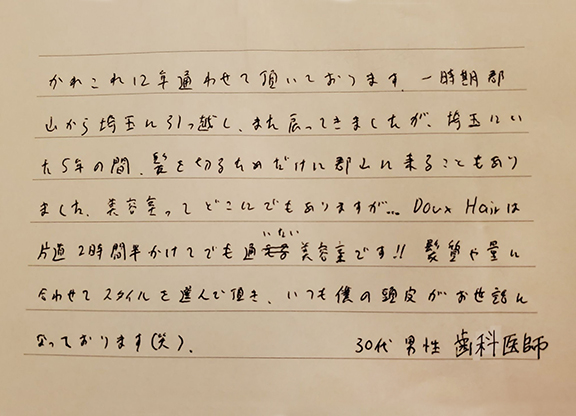 かれこれ12年通わせて頂いております。一時期郡
山から埼玉に引っ越し、また戻ってきましたが、埼玉にい
た5年の間、髪を切るためだけに郡山に来ることもあり
ました。美容室ってどこにでもありますが… Doux Hairは
片道2時間半かけてでも通いたい美容室です!! 髪質や量に
合わせてスタイルを選んで頂き、いつも僕の頭皮がお世話に
なっております(笑)。
30代 男性 歯科医師